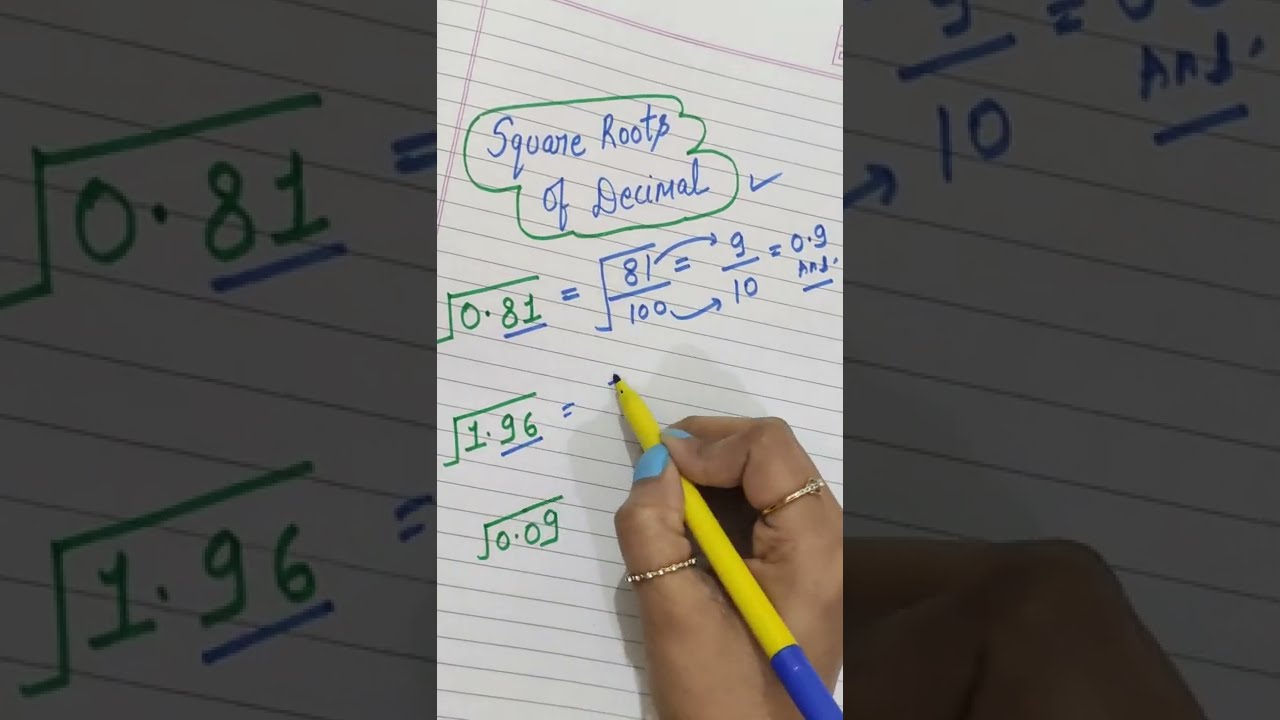 Square Roots
of Decimal ✓
√0.81 = √81/100 = 9/10 = 0.9
Ans.
√1.96 =
√0.09